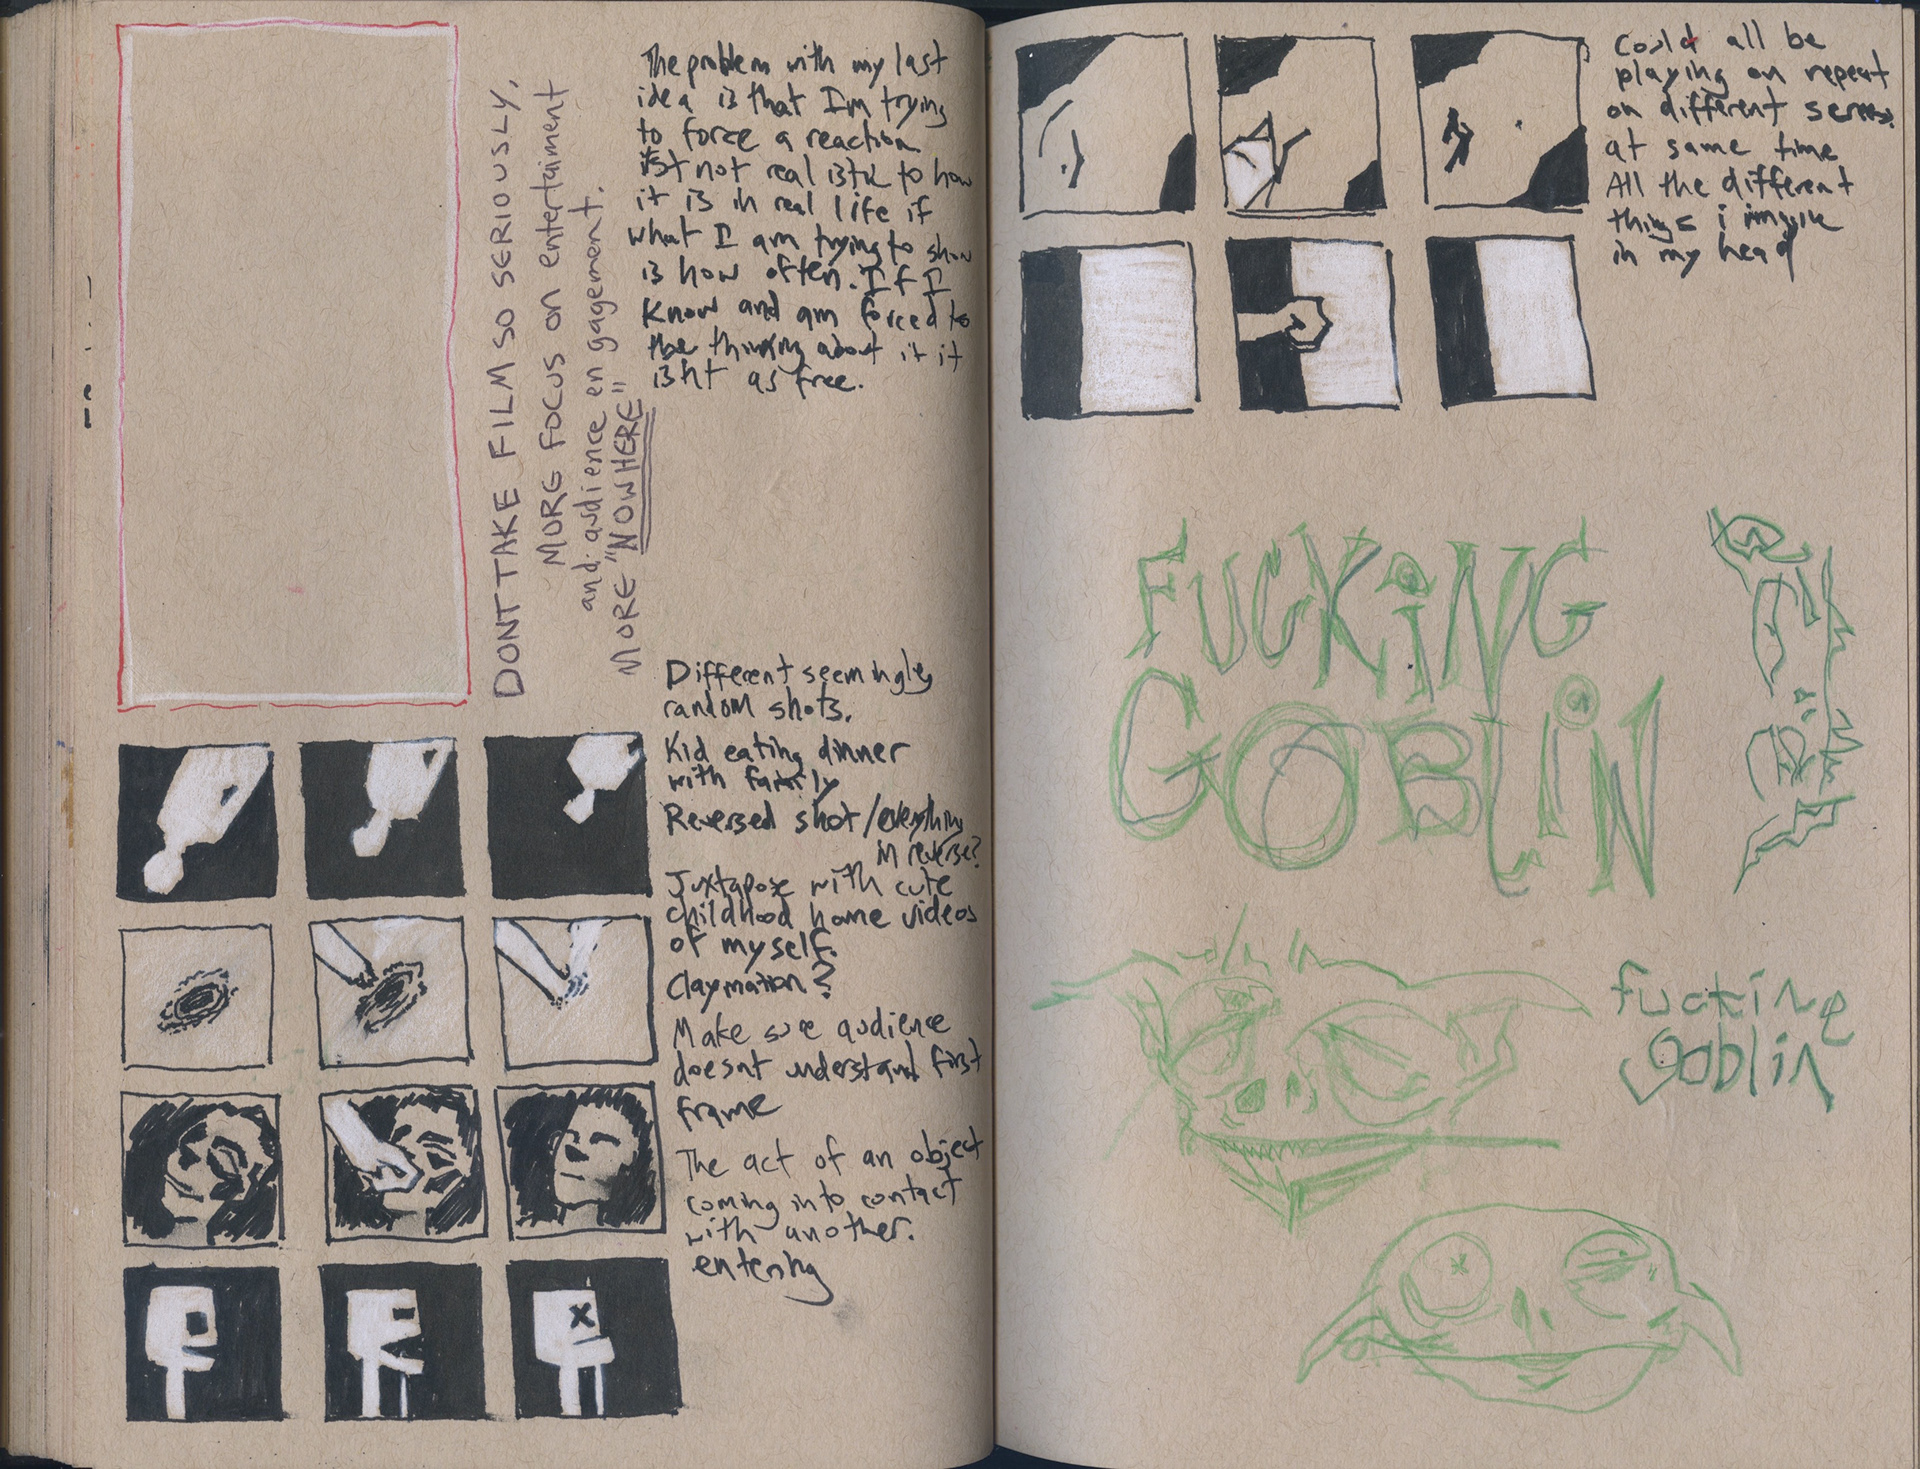 DONT TAKE FILM SO SERIOUSLY.
MORE FOCUS ON entertainment
and audience engagement.
MORE "NOWHERE"
The problem with my last
idea is that Im trying
to force a reaction
not realistic to how
it is in real life if
what I am trying to show
is how often. If I
know and am forced to
be thinking about it it
isnt as free.
Different seemingly
random shots.
Kid eating dinner
with family
Reversed shot/everything
in reverse?
Juxtapose with cute
childhood home videos
of myself.
Claymation?
Make sure audience
doesnt understand first
frame
The act of an object
coming into contact
with another.
entering
Could all be
playing on repeat
on different
at same time
All the different
things i
in my head
FUCKiNG
GOBLiN
fucking
goblin